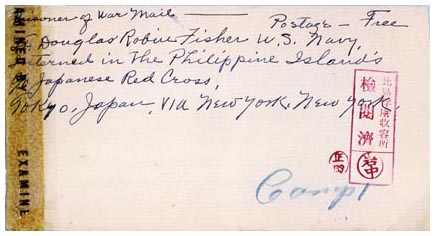 Prisoner of War Mail — Postage — Free
Douglas Robin Fisher U.S. Navy,
Interned in the Philippine Islands
℅ Japanese Red Cross,
Tokyo, Japan, Via New York, New York.
比島俘虜收容所
檢閲濟
Camp 1
EXAMINED BY
EXAMINE